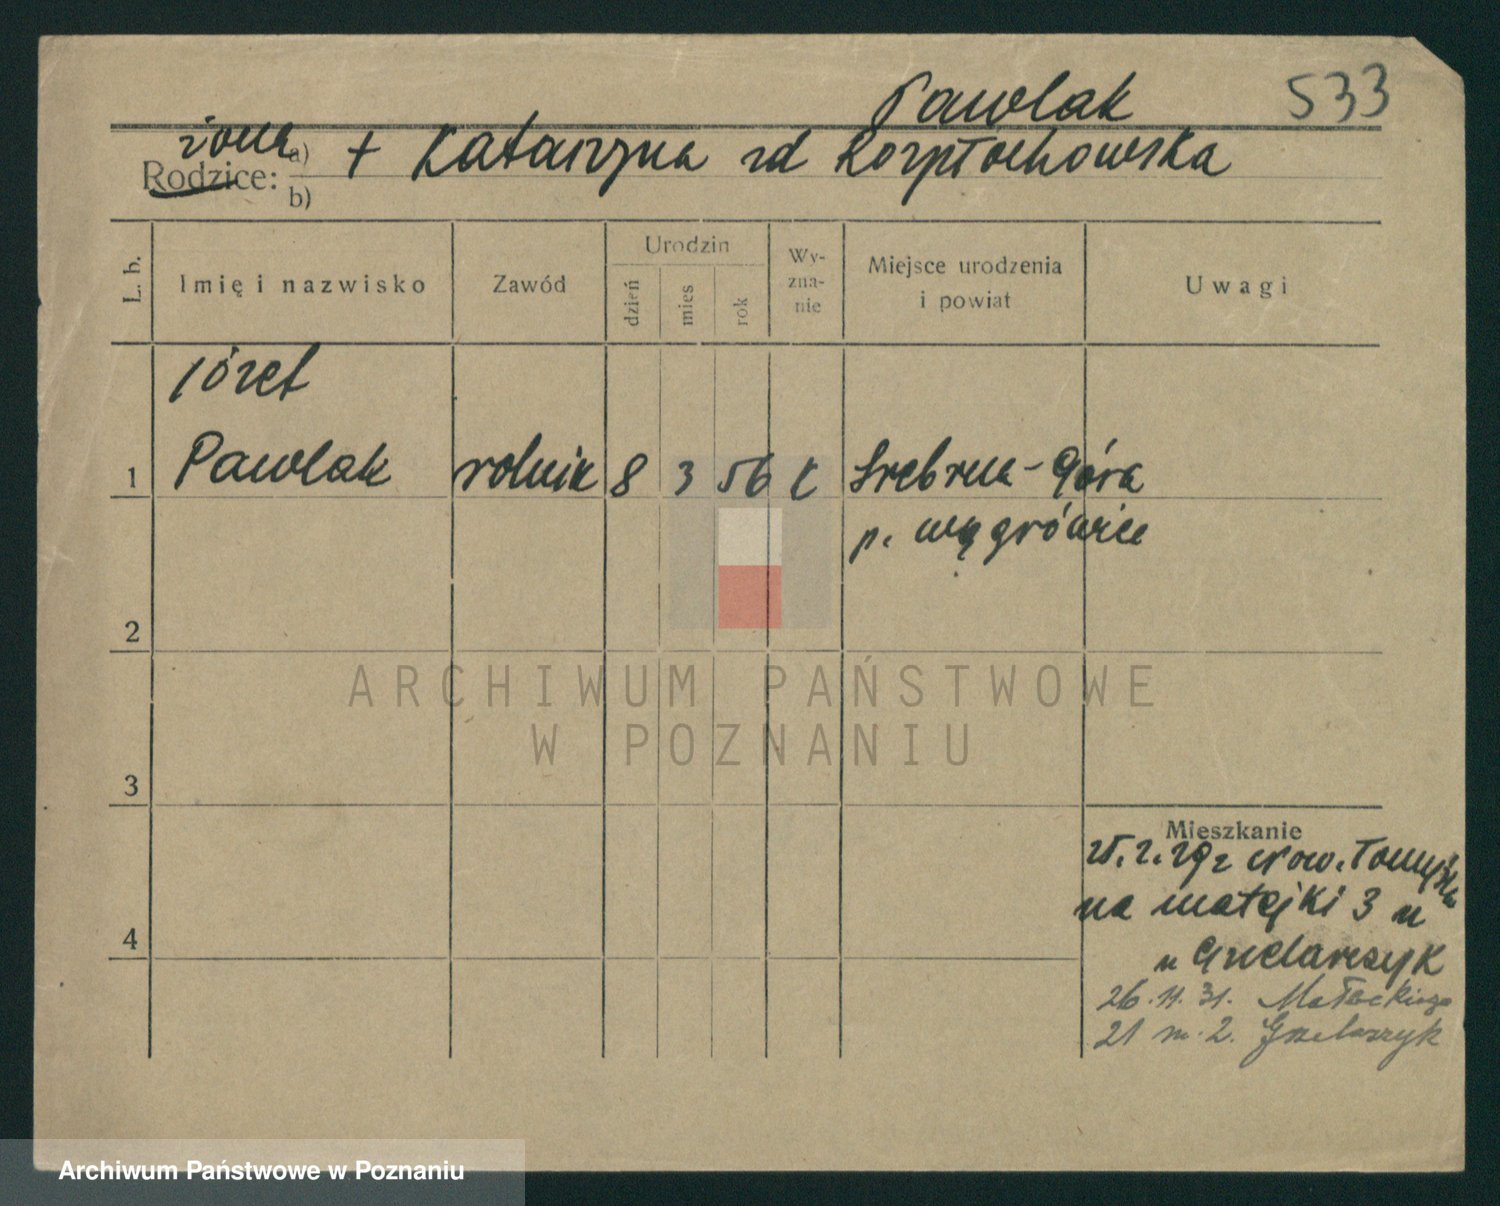 Pawlak 533
żona
Rodzice: a) + Katarzyna zd Rozpłochowska
b)
L. b. Imię i nazwisko Zawód Urodzin dzień mies rok Wy-zna-nie Miejsce urodzenia i powiat Uwagi
Józef
1 Pawlak rolnik 8 3 56 k Srebrna-Góra
p. wągrówiec
2
ARCHIWUM PAŃSTWOWE
W POZNANIU
3
Mieszkanie
25.2.29 z now. Tomyśla
na matejki 3 u
4
u Grzelarczyk
26.11.31. Małeckiego
21 m. 2. Grzelarczyk
Archiwum Państwowe w Poznaniu